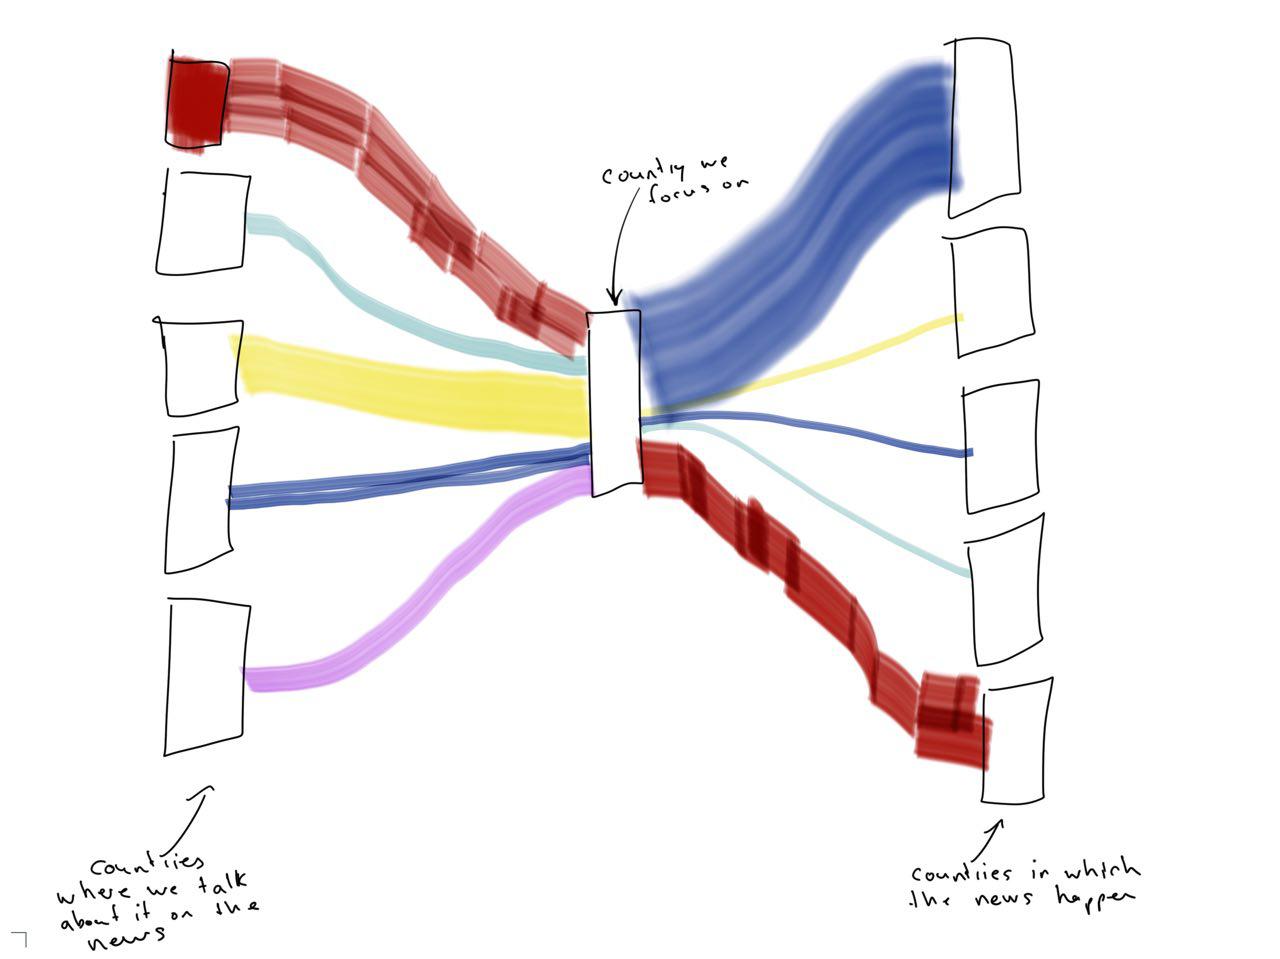 country we
focus on
countries
where we talk
about it on the
news
countries in which
the news happen